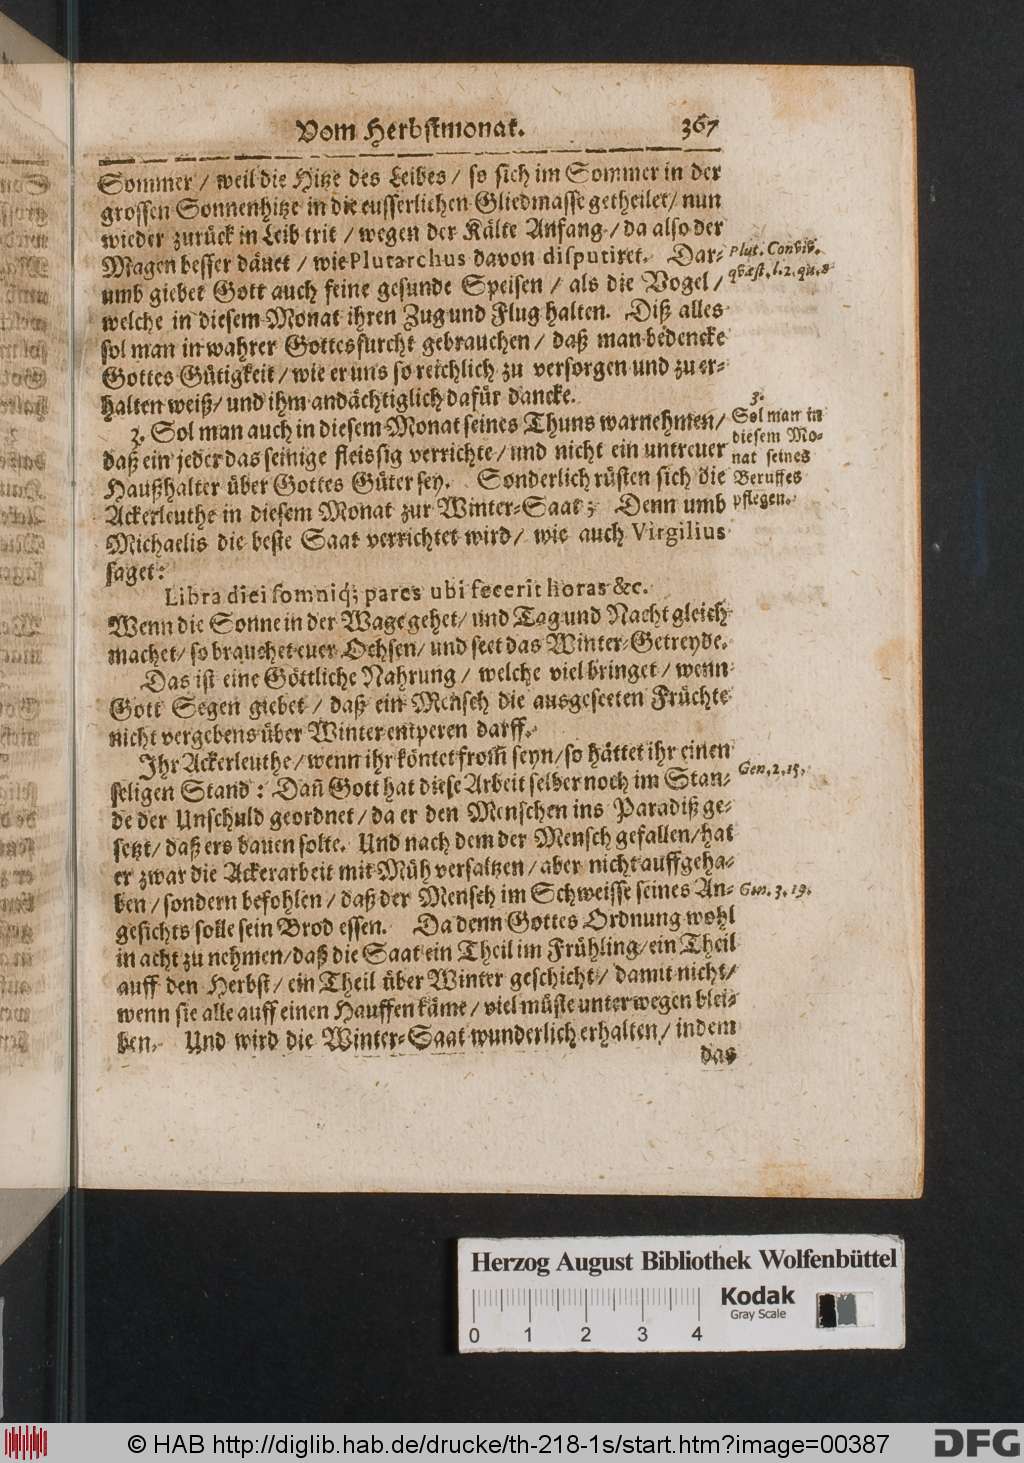 Vom Herbstmonat. 367
Sommer / weil die Hitze des Leibes / so sich im Sommer in der
grossen Sonnenhitze in die eusserlichen Gliedmasse getheilet / nun
wieder zurück in Leib trit / wegen der Kälte Anfang / da also der
Magen besser däuet / wie Plutarchus davon disputiret. Dar-
umb giebet Gott auch feine gesunde Speisen / als die Vogel /
welche in diesem Monat ihren Zug und Flug halten. Diß alles
sol man in wahrer Gottesfurcht gebrauchen / daß man bedencke
Gottes Gütigkeit / wie er uns so reichlich zu versorgen und zu er-
halten weiß / und ihm andächtiglich dafür dancke.
Plut. Conviv.
qvæst. l. 2. qu. 8
3. Sol man auch in diesem Monat seines Thuns warnehmen /
daß ein jeder das seinige fleissig verrichte / und nicht ein untreuer
Haußhalter über Gottes Güter sey. Sonderlich rüsten sich die
Ackerleuthe in diesem Monat zur Winter-Saat; Denn umb
Michaelis die beste Saat verrichtet wird / wie auch Virgilius
saget:
3.
Sol man in
diesem Mo-
nat seines
Beruffes
pflegen.
Libra diei somniq; pares ubi fecerit horas &c.
Wenn die Sonne in der Wage gehet / und Tag und Nacht gleich
machet / so brauchet euer Ochsen / und seet das Winter-Getreyde.
Das ist eine Göttliche Nahrung / welche viel bringet / wenn
Gott Segen giebet / daß ein Mensch die ausgeseeten Früchte
nicht vergebens über Winter entperen darff.
Ihr Ackerleuthe / wenn ihr köntet from̃ seyn / so hättet ihr einen
seligen Stand: Dañ Gott hat diese Arbeit selber noch im Stan-
de der Unschuld geordnet / da er den Menschen ins Paradiß ge-
setzt / daß ers bauen solte. Und nach dem der Mensch gefallen / hat
er zwar die Ackerarbeit mit Müh versaltzen / aber nicht auffgeha-
ben / sondern befohlen / daß der Mensch im Schweisse seines An-
gesichts solle sein Brod essen. Da denn Gottes Ordnung wohl
in acht zu nehmen / daß die Saat ein Theil im Frühling / ein Theil
auff den Herbst / ein Theil über Winter geschicht / damit nicht /
wenn sie alle auff einen Hauffen käme / viel müste unterwegen blei-
ben. Und wird die Winter-Saat wunderlich erhalten / indem
das
Gen. 2. 15.
Gen. 3. 19.
Herzog August Bibliothek Wolfenbüttel
0 1 2 3 4
Kodak
Gray Scale
© HAB http://diglib.hab.de/drucke/th-218-1s/start.htm?image=00387
DFG